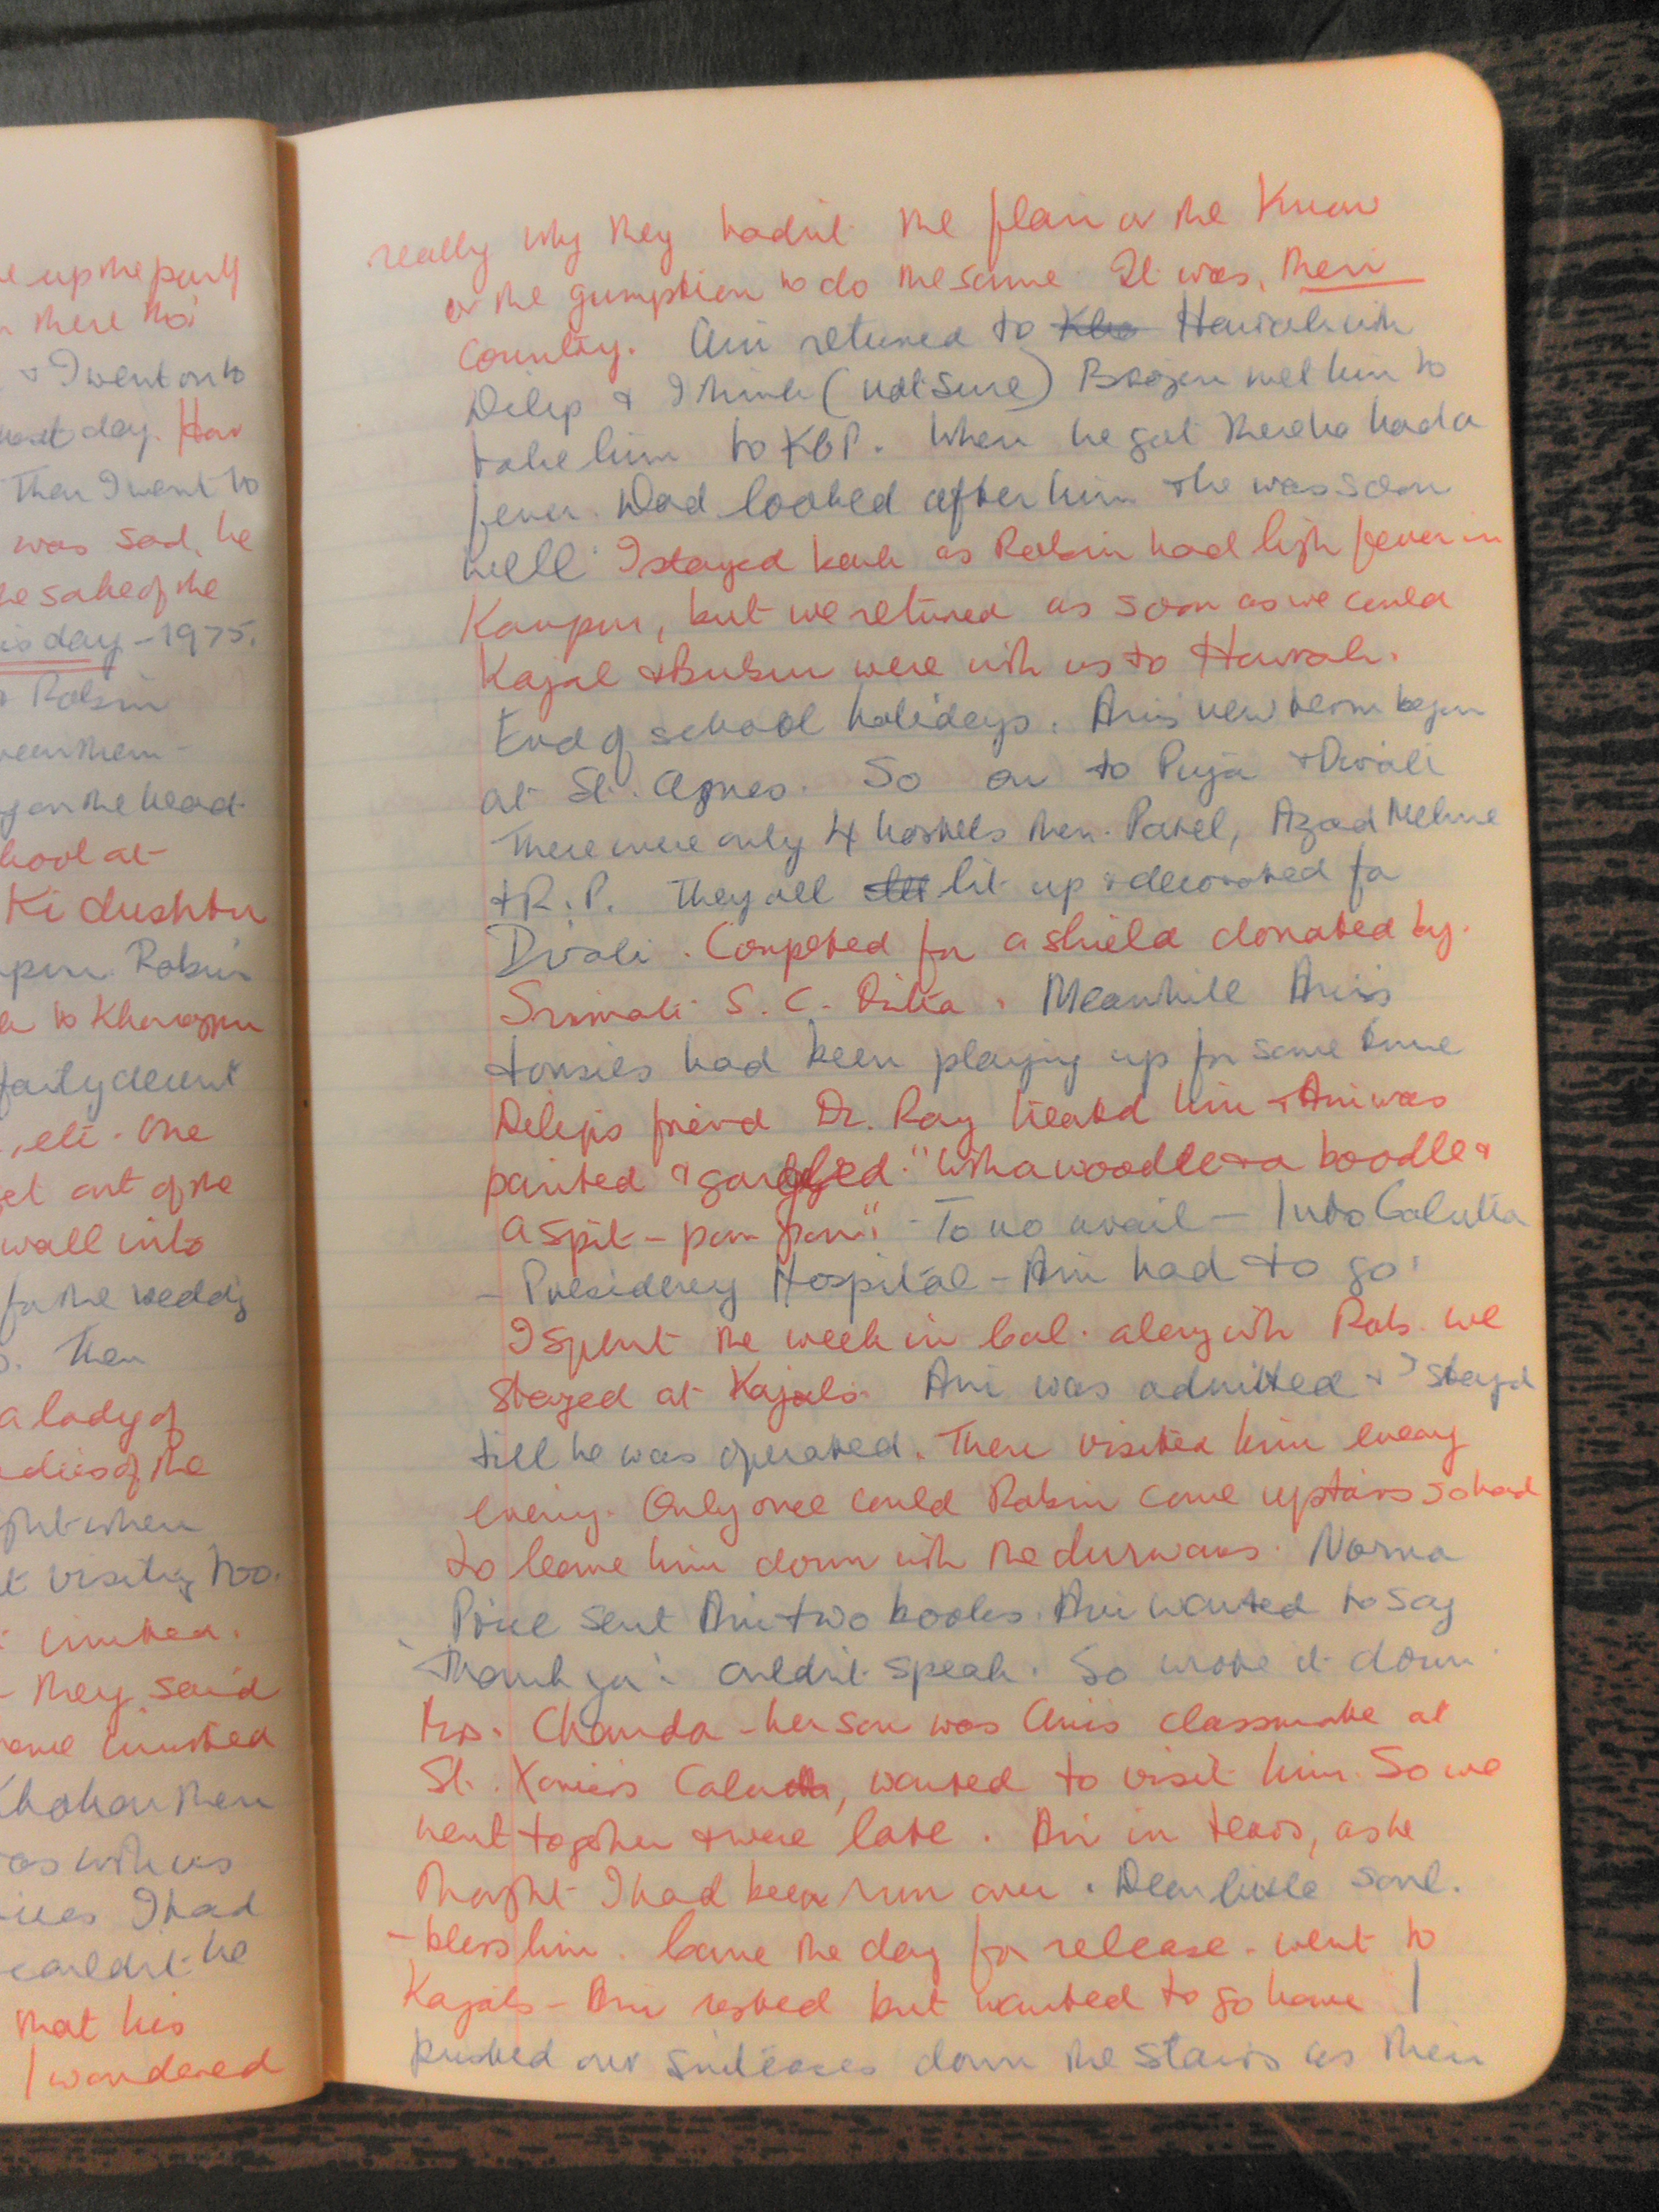 e up the party
n there tho'
& I went on to
next day. How
Then I went to
was sad, he
he sake of the
is day - 1975.
& Robin
ween them -
g on the head
hool at
Ki dushtu
pur. Robin
to Kharagpur
fairly decent
, etc. One
et out of the
wall into
for the wedding
Then
a lady of
ladies of the
ght when
t visiting too.
invited.
- they said
some invited
Khokan then
as with us
I had
couldn't he
that his
I wondered
really why they hadn't the flair or the know
or the gumption to do the same. It was, their
country. Ani returned to Howrah with
Dilip & I think (not sure) met him to
take him to KGP. When he got there he had a
fever. Dad looked after him & he was soon
well. I stayed back as Robin had high fever in
Kanpur, but we returned as soon as we could
Kajal & Bubun were with us to Howrah.
End of school holidays. Ani's new term began
at St. Agnes. So on to Puja & Divali
There were only 4 hostels then. Patel, Azad Nehru
& R.P. They all lit up & decorated for
Divali. Competed for a shield donated by
Srimati S. C. Dutta. Meanwhile Ani's
tonsils had been playing up for some time
Dilip's friend Dr. Ray treated him & Ani was
painted & gargled. "With a woodle & a boodle &
a spit - pan pan" - To no avail - Into Calcutta
- Presidency Hospital - Ani had to go.
I spent the week in Cal. along with Rob. We
stayed at Kajal's. Ani was admitted & I stayed
till he was operated. Then visited him every
evening. Only once could Robin come upstairs so had
to leave him down with the durwans. Norma
Price sent Ani two books. Ani wanted to say
'Thank you'. Couldn't speak. So wrote it down.
Mrs. Chanda - her son was Ani's classmate at
St. Xavier's Calcutta, wanted to visit him. So we
went together & were late. Ani in tears, as he
thought I had been run over. Dear little soul.
- bless him. Came the day for release - went to
Kajal's - Ani rested but wanted to go home I
pushed our suitcases down the stairs as their